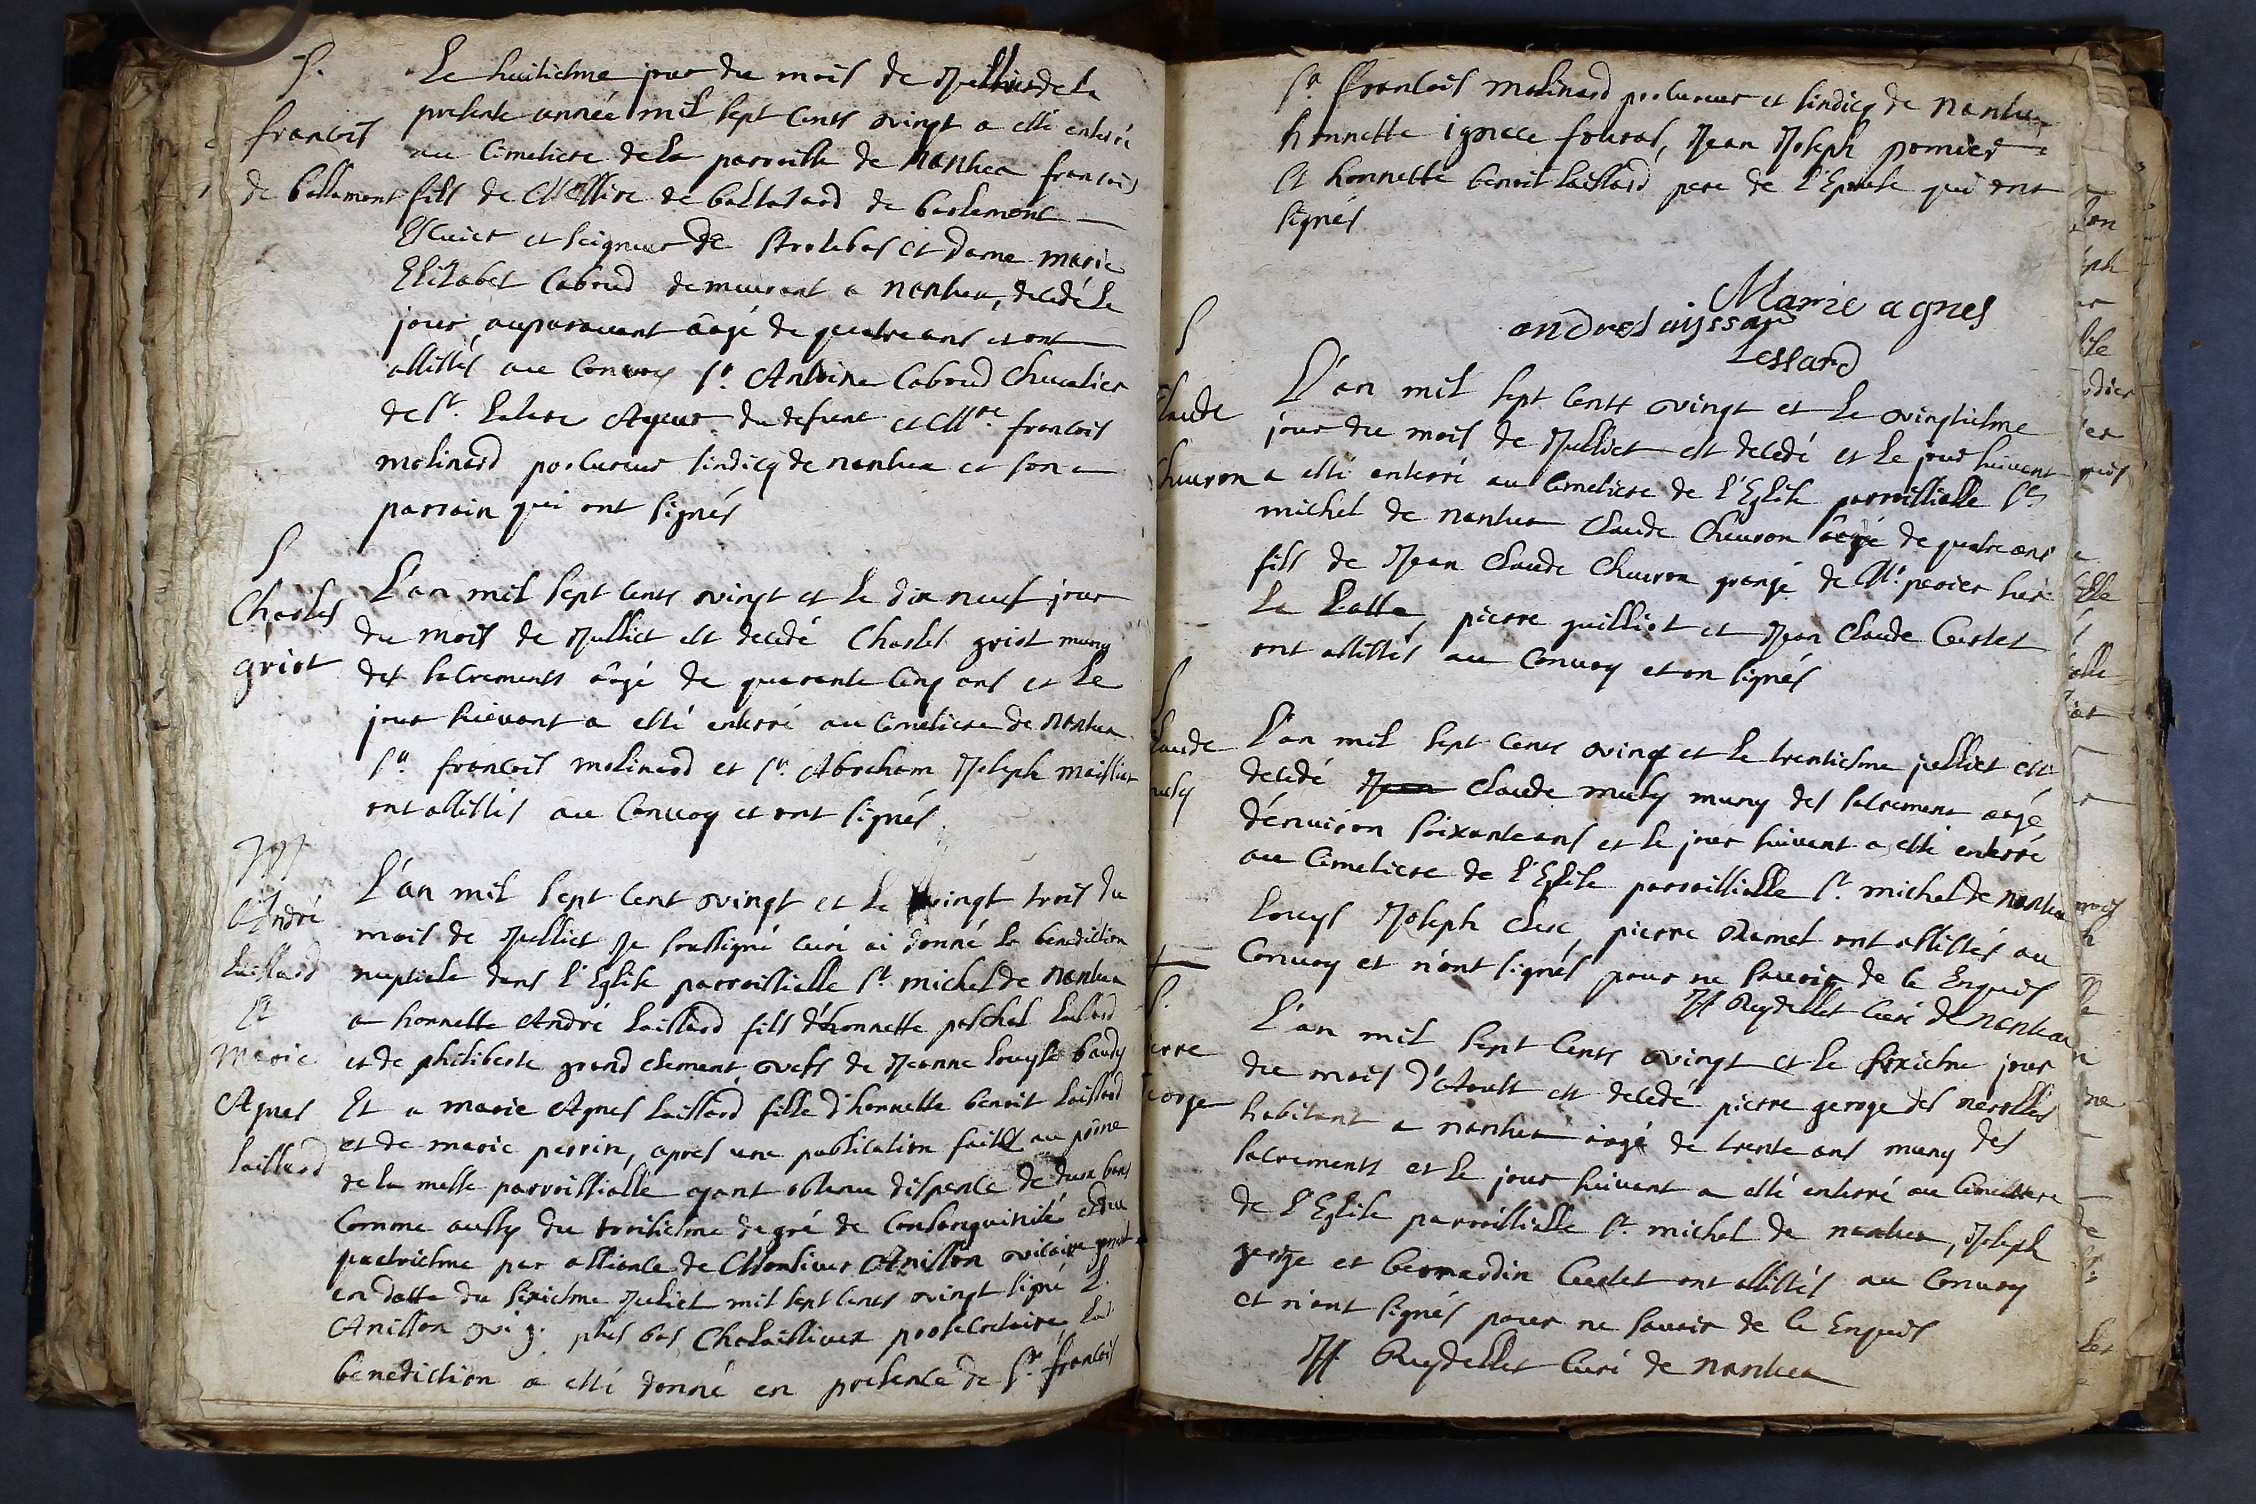 S.
francois
de ballemont
Le huitiesme jour du mois de Julliet de la
presente année mil sept cents vingt a esté enterré
au Cimetiere de la parroisse de Nantua francois
fils de Messire de baltasard de barlemont
Escuier et seigneur de et Dame marie
Elizabet Caboud demeurant a nantua, decedé le
jour auparavant âagé de quatre ans et ont
assistés au Convoy Sr. Antoine Caboud Chevalier
de St. Lazare Ayeur du defunt et Mre. francois
molinard procureur sindicq de nantua et son
parrain qui ont signés
S
Charles
griot
L'an mil sept cents vingt et le dix neuf jour
du mois de Julliet est decedé Charles griot muny
des sacrements âagé de quarente cinq ans et le
jour suivant a esté enterré au Cimetiere de nantua
Sr. francois molinard et Sr. Abraham Joseph maillier
ont assistés au Convoy et ont signés
M
André
laissard
Et
Marie
Agnes
laissard
L'an mil sept cent vingt et le vingt trois du
mois de Julliet Je soussigné curé ai donné la benediction
nuptiale dans l'Eglise parroissialle St. michel de nantua
a honnette André laissard fils d'honnette paschal laissard
et de philiberte grand clement veuf de Jeanne louyse baudy
Et a marie Agnes laissard fille d'honnette benoit laissard
et de marie perrin, apres une publication faitte au prône
de la messe parroissialle ayant obtenu dispence de deux bans
Comme aussy du troisiesme degré de Consanguinité et du
quatriesme par alliance de Monsieur Anisson vicaire gnal
en datte du sixiesme Juliet mil sept cents vingt signé L.
Anisson v. g. plus bas prosecretaire lad.
benediction a esté donné en presence de Sr. francois
Sr. francois molinard procureur et sindicq de nantua
honnette ignace fouras, Jean Joseph pomier
et honnette benoit laissard pere de l'Epouse qui ont
signés
Marie agnes
andre laissard
Lessard
S
Claude
Chevron
L'an mil sept cents vingt et le vingtiesme
jour du mois de Julliet est decedé et le jour suivant
a esté enterré au Cimetiere de l'Eglise parroissialle St.
michel de nantua Claude Chevron âagé de quatre ans
fils de Jean Claude Chevron grangé de Mr. perier sur
la Latte, pierre guilliot et Jean Claude Curtet
ont assistés au Convoy et on signés
S
Claude
musy
L'an mil sept cents vingt et le trentiesme julliet est
decedé Jean Claude musy muny des sacrement âagé
d'énuiron soixante ans et le jour suivant a esté enterré
au Cimetiere de l'Eglise parroissialle St. michel de nantua
Louys Joseph clerc pierre Ramel ont assistés au
Convoy et n'ont signés pour ne scavoir de ce Enquis
JF Reydellet Curé de nantua
S.
pierre
george
L'an mil sept cents vingt et le sixiesme jour
du mois d'Aoust est decedé pierre geroge des nerolles
habitant a nantua âagé de trente ans muny des
sacrements et le jour suivant a esté enterré au Cimettiere
de l'Eglise parroissialle St. michel de nantua, Joseph
geroge et bernardin Curtet ont assistés au Convoy
et n'ont signés pour ne savoir de ce Enquis
JF Reydellet Curé de nantua